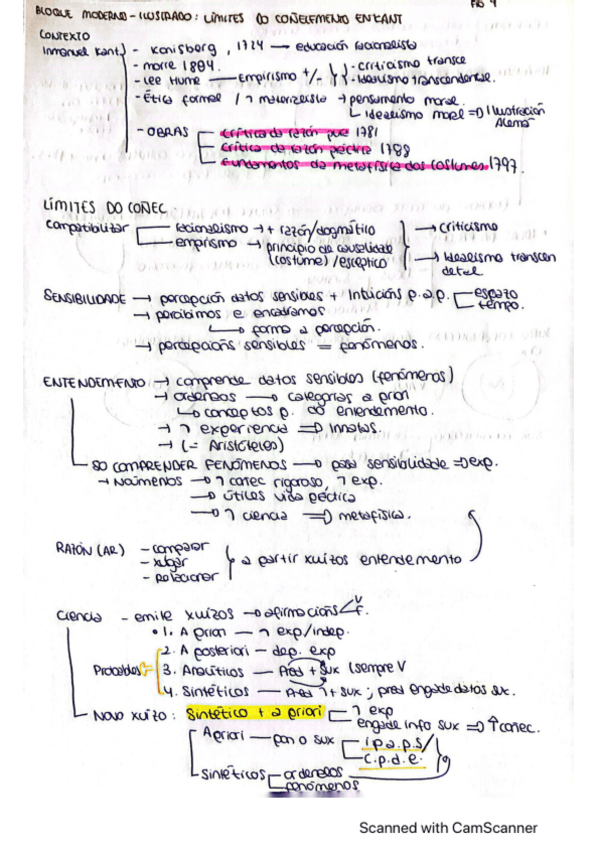 BLOQUE MODERNO-ILUSTRADO: LÍMITES DO COÑECEMENTO EN KANT
CONTEXTO
Inmanuel Kant - Konisberg, 1724 → educación racionalista
- morre 1804.
- Lee Hume — Empirismo +/- - criticismo transce
- Idealismo transcendental.
- Ética formal / ┐ materialista → pensamento moral.
└ Idealismo moral => Ilustración Alemá
- OBRAS
Crítica da razón pura 1781
Crítica da razón práctica 1788
Fundamentos da metafísica dos costumes 1797.
LÍMITES DO COÑEC.
Compatibilizar
racionalismo → + razón/dogmático → Criticismo
empirismo → principio de causalidade (costume) / escéptico → Idealismo transcendental
SENSIBILIDADE → percepción datos sensibles + Intuicións p. a p. espazo tempo.
→ percibimos e encadramos
forma a percepción.
→ percepcións sensibles = fenómenos.
ENTENDEMENTO → comprende datos sensibles (fenómenos)
→ ordenaos → categorías a priori
conceptos p. do entendemento.
→ ┐ experiencia => Innatas.
→ (= Aristóteles)
SO COMPRENDER FENÓMENOS → pasa sensibilidade => exp.
→ Noúmenos → ┐ coñec rigoroso, ┐ exp.
→ útiles vida práctica
→ ┐ ciencia => metafísica.
RAZÓN (AR) - comparar
- xulgar
- relacionar
a partir xuízos entendemento
Ciencia - emite xuízos → afirmacións V F.
• 1. A priori — ┐ exp/indep.
2. A posteriori — dep. exp
Probables
3. Analíticos — Pred + Sux (sempre V
4. Sintéticos — Pred ┐ + sux; pred engade datos sux.
Novo xuízo: Sintético + a priori ┐ exp
engade info sux => ↑ coñec.
A priori — pon o sux i.p.a.p.s /
c.p.d.e.
Sintéticos ordenalos
fenómenos
Scanned with CamScanner